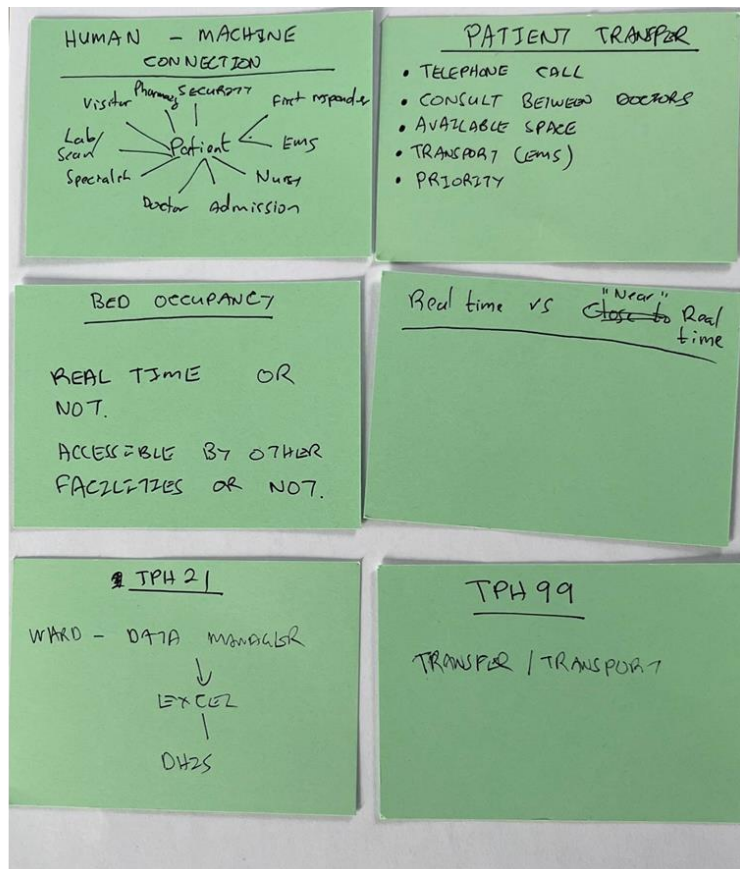 HUMAN - MACHINE
CONNECTION
Pharmacy SECURITY
Visitor
First responder
Lab/
Scan
Patient
EMS
Specialist
Nurse
Doctor Admission
PATIENT TRANSFER
• TELEPHONE CALL
• CONSULT BETWEEN DOCTORS
• AVAILABLE SPACE
• TRANSPORT (EMS)
• PRIORITY
BED OCCUPANCY
REAL TIME OR
NOT.
ACCESSIBLE BY OTHER
FACILITIES OR NOT.
"Near"
Real time vs Close to Real
time
TPH 21
WARD - DATA MANAGER
EXCEL
DHIS
TPH 99
TRANSFER / TRANSPORT